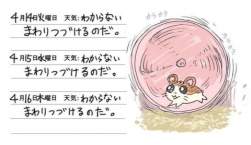 4月14日火曜日 天気:わからない
まわりつづけるのだ。
4月15日水曜日 天気:わからない
まわりつづけるのだ。
4月16日木曜日 天気:わからない
まわりつづけるのだ。